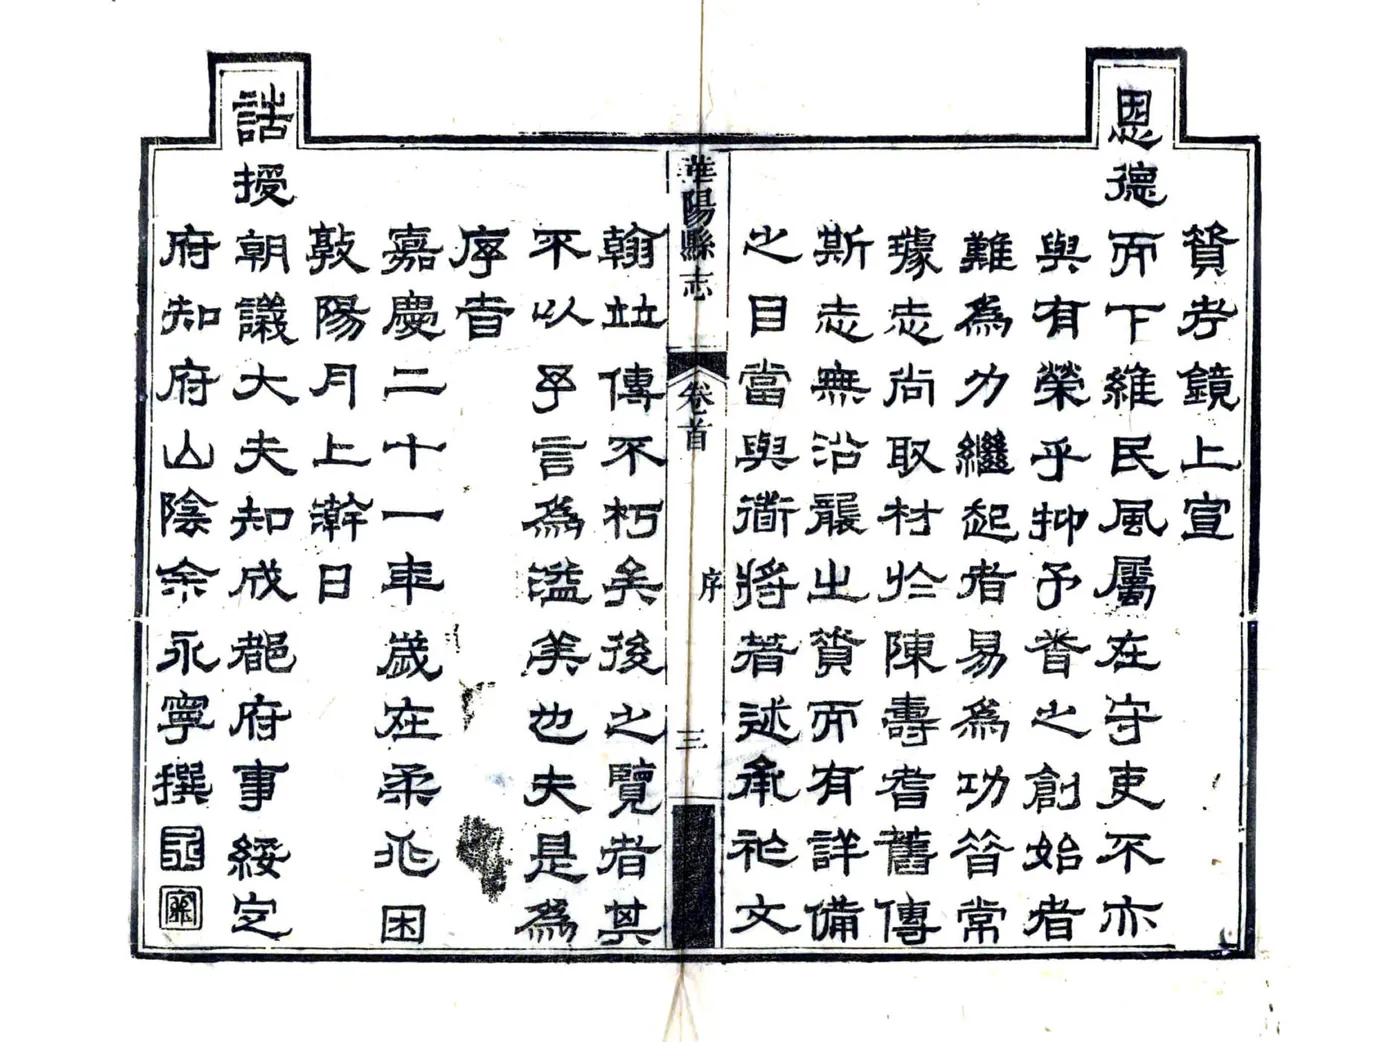 資考鏡上宣
恩德而下維民風屬在守吏不亦
與有榮乎抑予昚之創始者
難為力繼起者易為功昔常
璩志尚取材於陳壽耆舊傳
斯志無沿襲之資而有詳備
之目當與衟將著述承祚文
華陽縣志 卷首 序 三
翰竝傳不朽矣後之覽者其
不以予言為溢美也夫是為
序旹
嘉慶二十一年歲在柔兆困
敦陽月上澣日
誥授朝議大夫知成都府事綏定
府知府山陰余永寧撰
永
寧